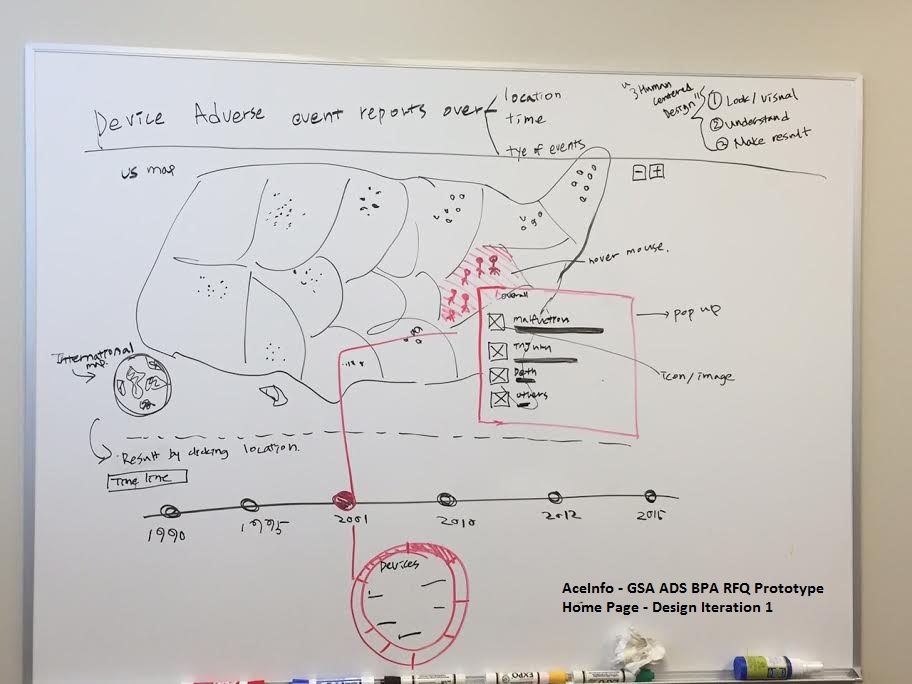 Device Adverse event reports over
location
time
tye of events
"3 Human
Centered
Design"
① Look/visual
② understand
② Make result
US map
- +
hover mouse.
Overall
malfuction
Injury
Death
others
pop up
Icon/image
International
map.
Result by clicking location.
Time line
1990
1995
2001
2010
2012
2015
Devices
AceInfo - GSA ADS BPA RFQ Prototype
Home Page - Design Iteration 1
EXPO
EXPO